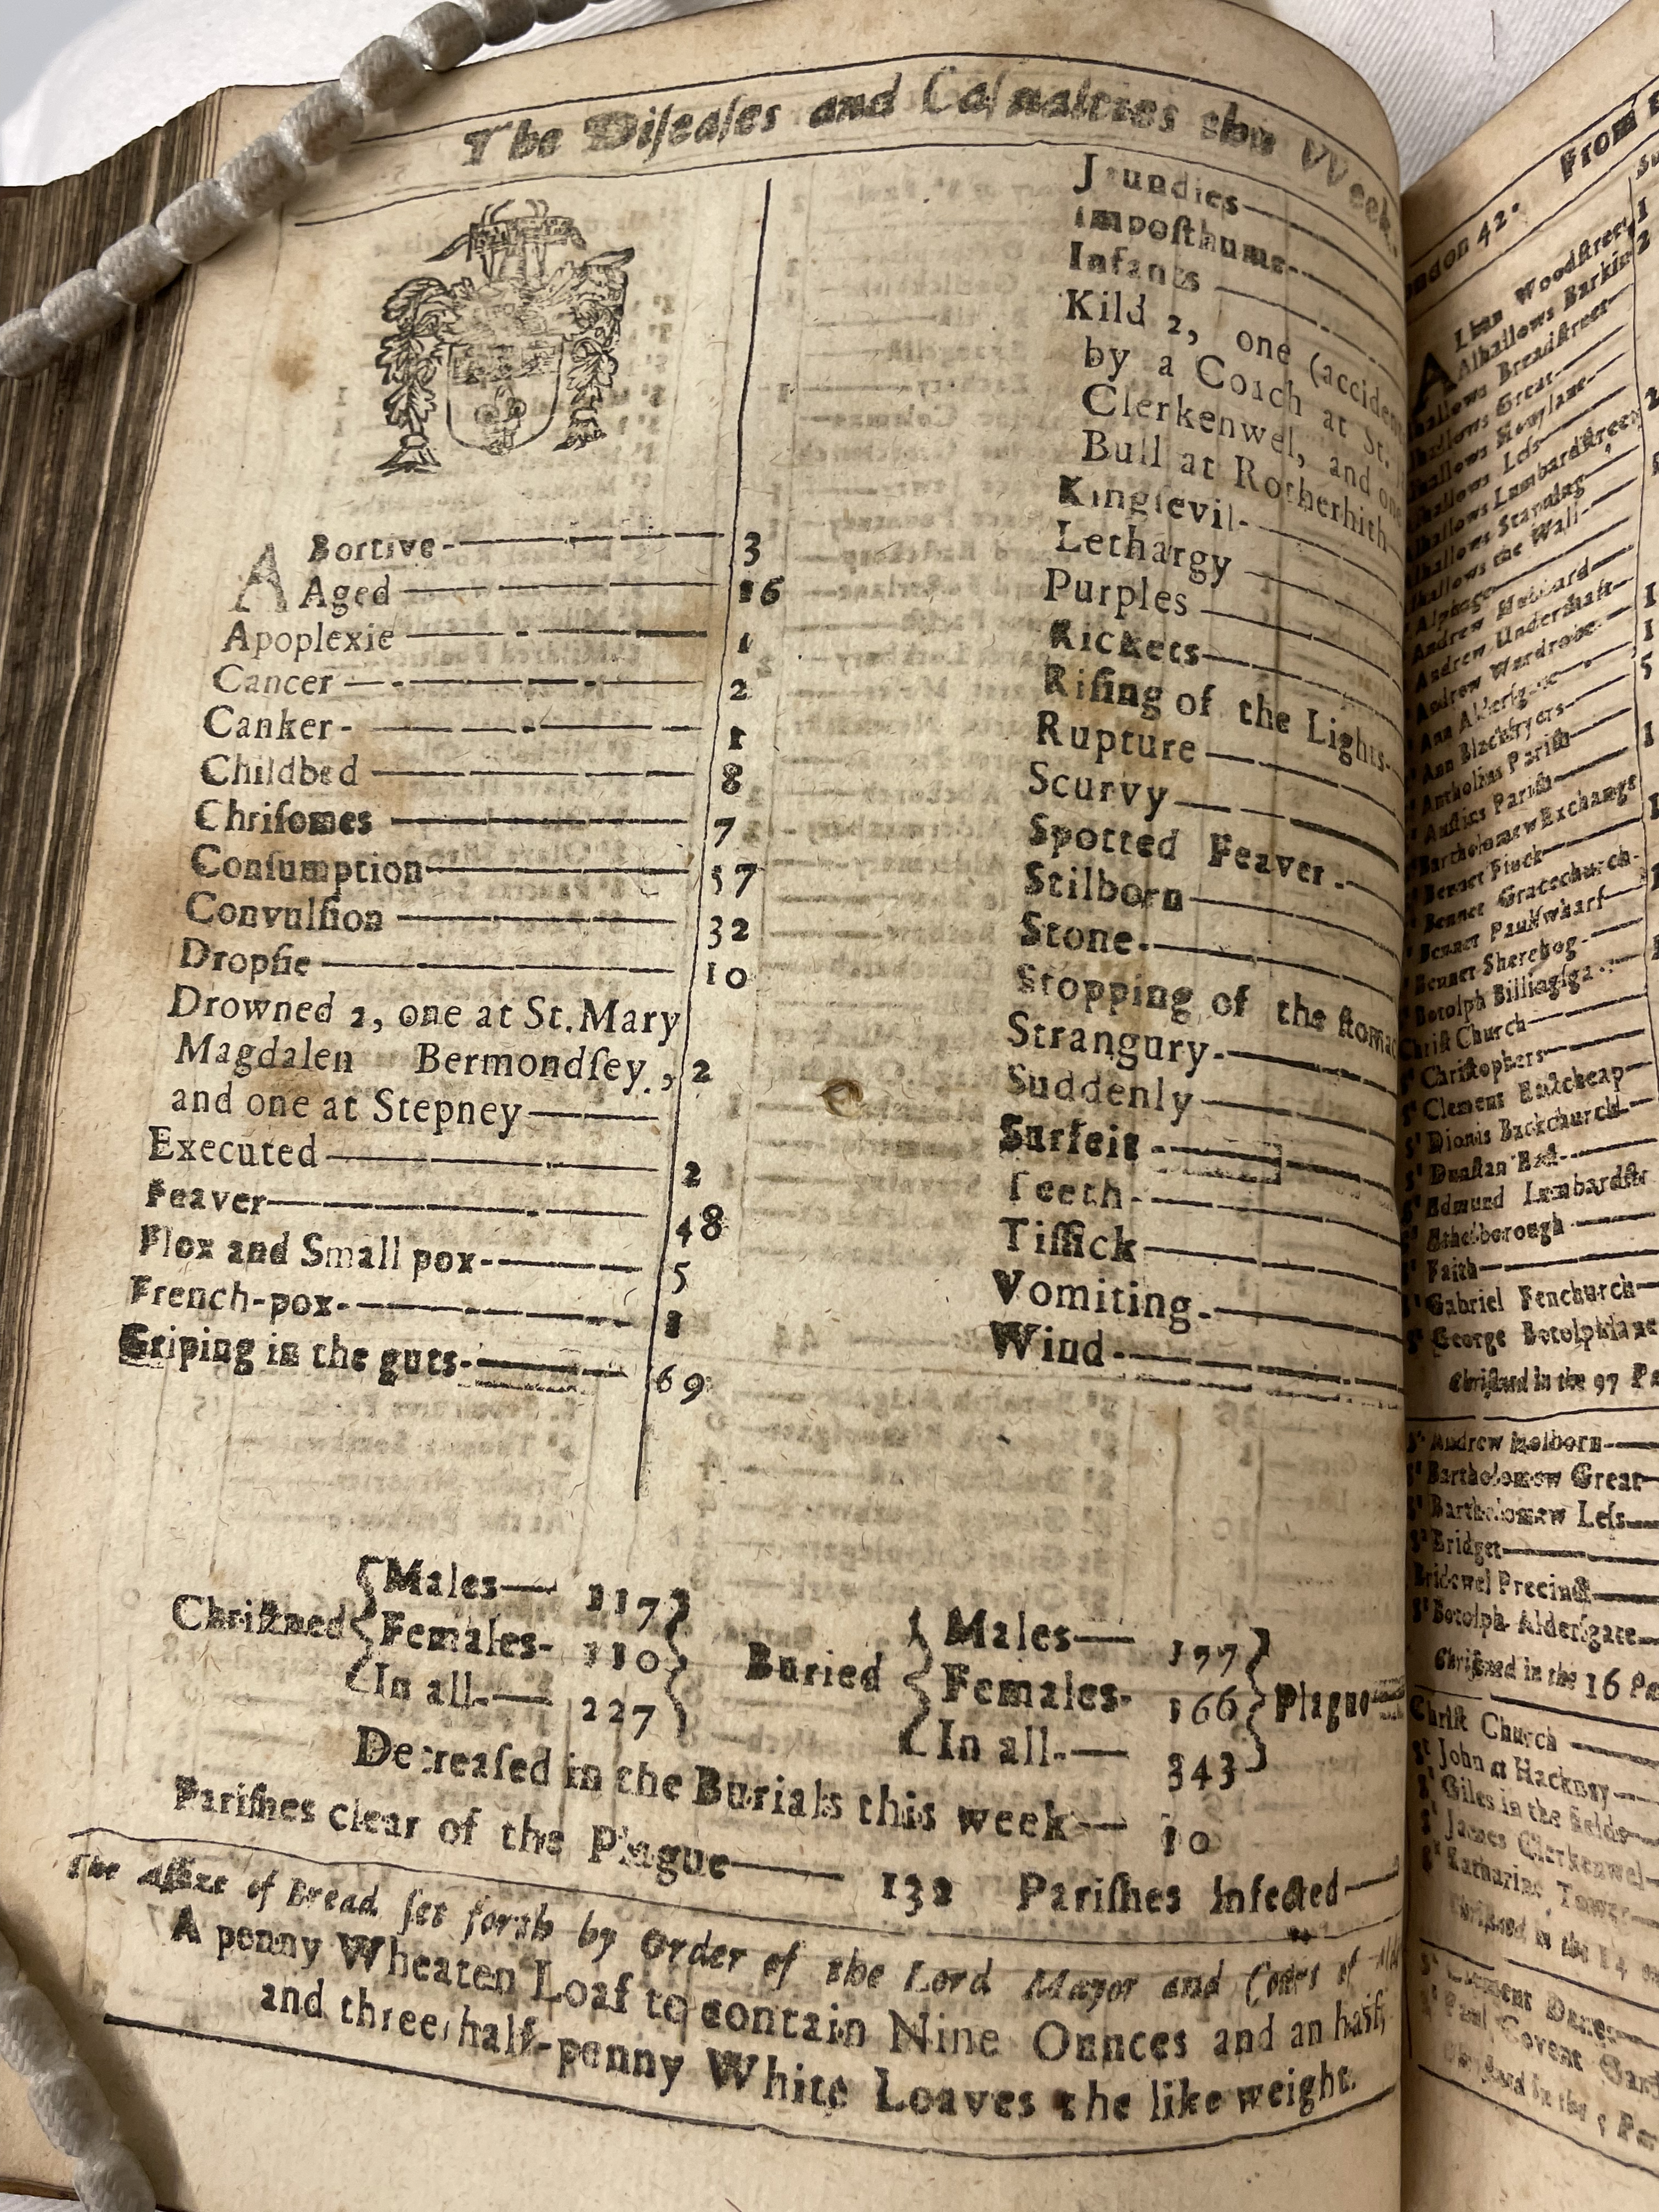 The Diſeaſes and Caſualties this VVeek.
ABortive 3
Aged 16
Apoplexie 1
Cancer 2
Canker 1
Childbed 8
Chriſomes 7
Conſumption 57
Convulſion 32
Dropſie 10
Drowned 2, one at St. Mary
Magdalen Bermondſey, 2
and one at Stepney
Executed 2
Feaver 48
Flox and Small pox 5
French-pox 1
Griping in the guts 69
Jaundies
Impoſthume
Infants
Kild 2, one (accident
by a Coach at St.
Clerkenwel, and one
Bull at Rotherhith
Kingſevil
Lethargy
Purples
Rickets
Riſing of the Lights
Rupture
Scurvy
Spotted Feaver
Stilborn
Stone
Stopping of the ſtomac
Strangury
Suddenly
Surfeit
Teeth
Tiſſick
Vomiting
Wind
Chriſtned Males 117
Females 110
In all 227
Buried Males 177
Females 166
In all 343
Plague
Decreaſed in the Burials this week 10
Pariſhes clear of the Plague 132 Pariſhes Infected
The Aſſize of Bread ſet forth by Order of the Lord Mayor and Court of
A penny Wheaten Loaf to contain Nine Ounces and an half,
and three half-penny White Loaves the like weight.
ndon 42. From
Woodſtreet 1
Alhallows Barkin 2
hallows Breadſtreet
Great
Honylane
Leſs 2
Lumbardſtreet
hallows Staining
hallows the Wall
Alphage
Andrew Hubbard
Andrew Underſhaft 1
Andrew Wardrobe 1
Ann Alderſgate 5
Ann Blackfryers
Antholins Pariſh 1
Auſtins Pariſh
Bartholomew Exchange
Bennet Finck
Bennet Gracechurch
Bennet Paulſwharf
Bennet Sherehog
Botolph Billingſga
Chriſt Church
Chriſtophers
Sᵗ Clement Eaſtcheap
Sᵗ Dionis Backchurch
Sᵗ Dunſtan Eaſt
Sᵗ Edmund Lumbardſtr
Sᵗ Ethelborough
Sᵗ Faith
Sᵗ Gabriel Fenchurch
Sᵗ George Botolphlane
Chriſtned in the 97 Pa
Sᵗ Andrew Holborn
Sᵗ Bartholomew Great
Sᵗ Bartholomew Leſs
Sᵗ Bridget
Bridewel Precinct
Sᵗ Botolph Alderſgate
Chriſtned in the 16 Pa
Chriſt Church
Sᵗ John at Hackney
Sᵗ Giles in the fields
Sᵗ James Clerkenwel
Sᵗ Katharine Tower
Chriſtned in the 14
Sᵗ Clement Danes
Sᵗ Paul Covent Gard
Chriſtned in the 5 Par